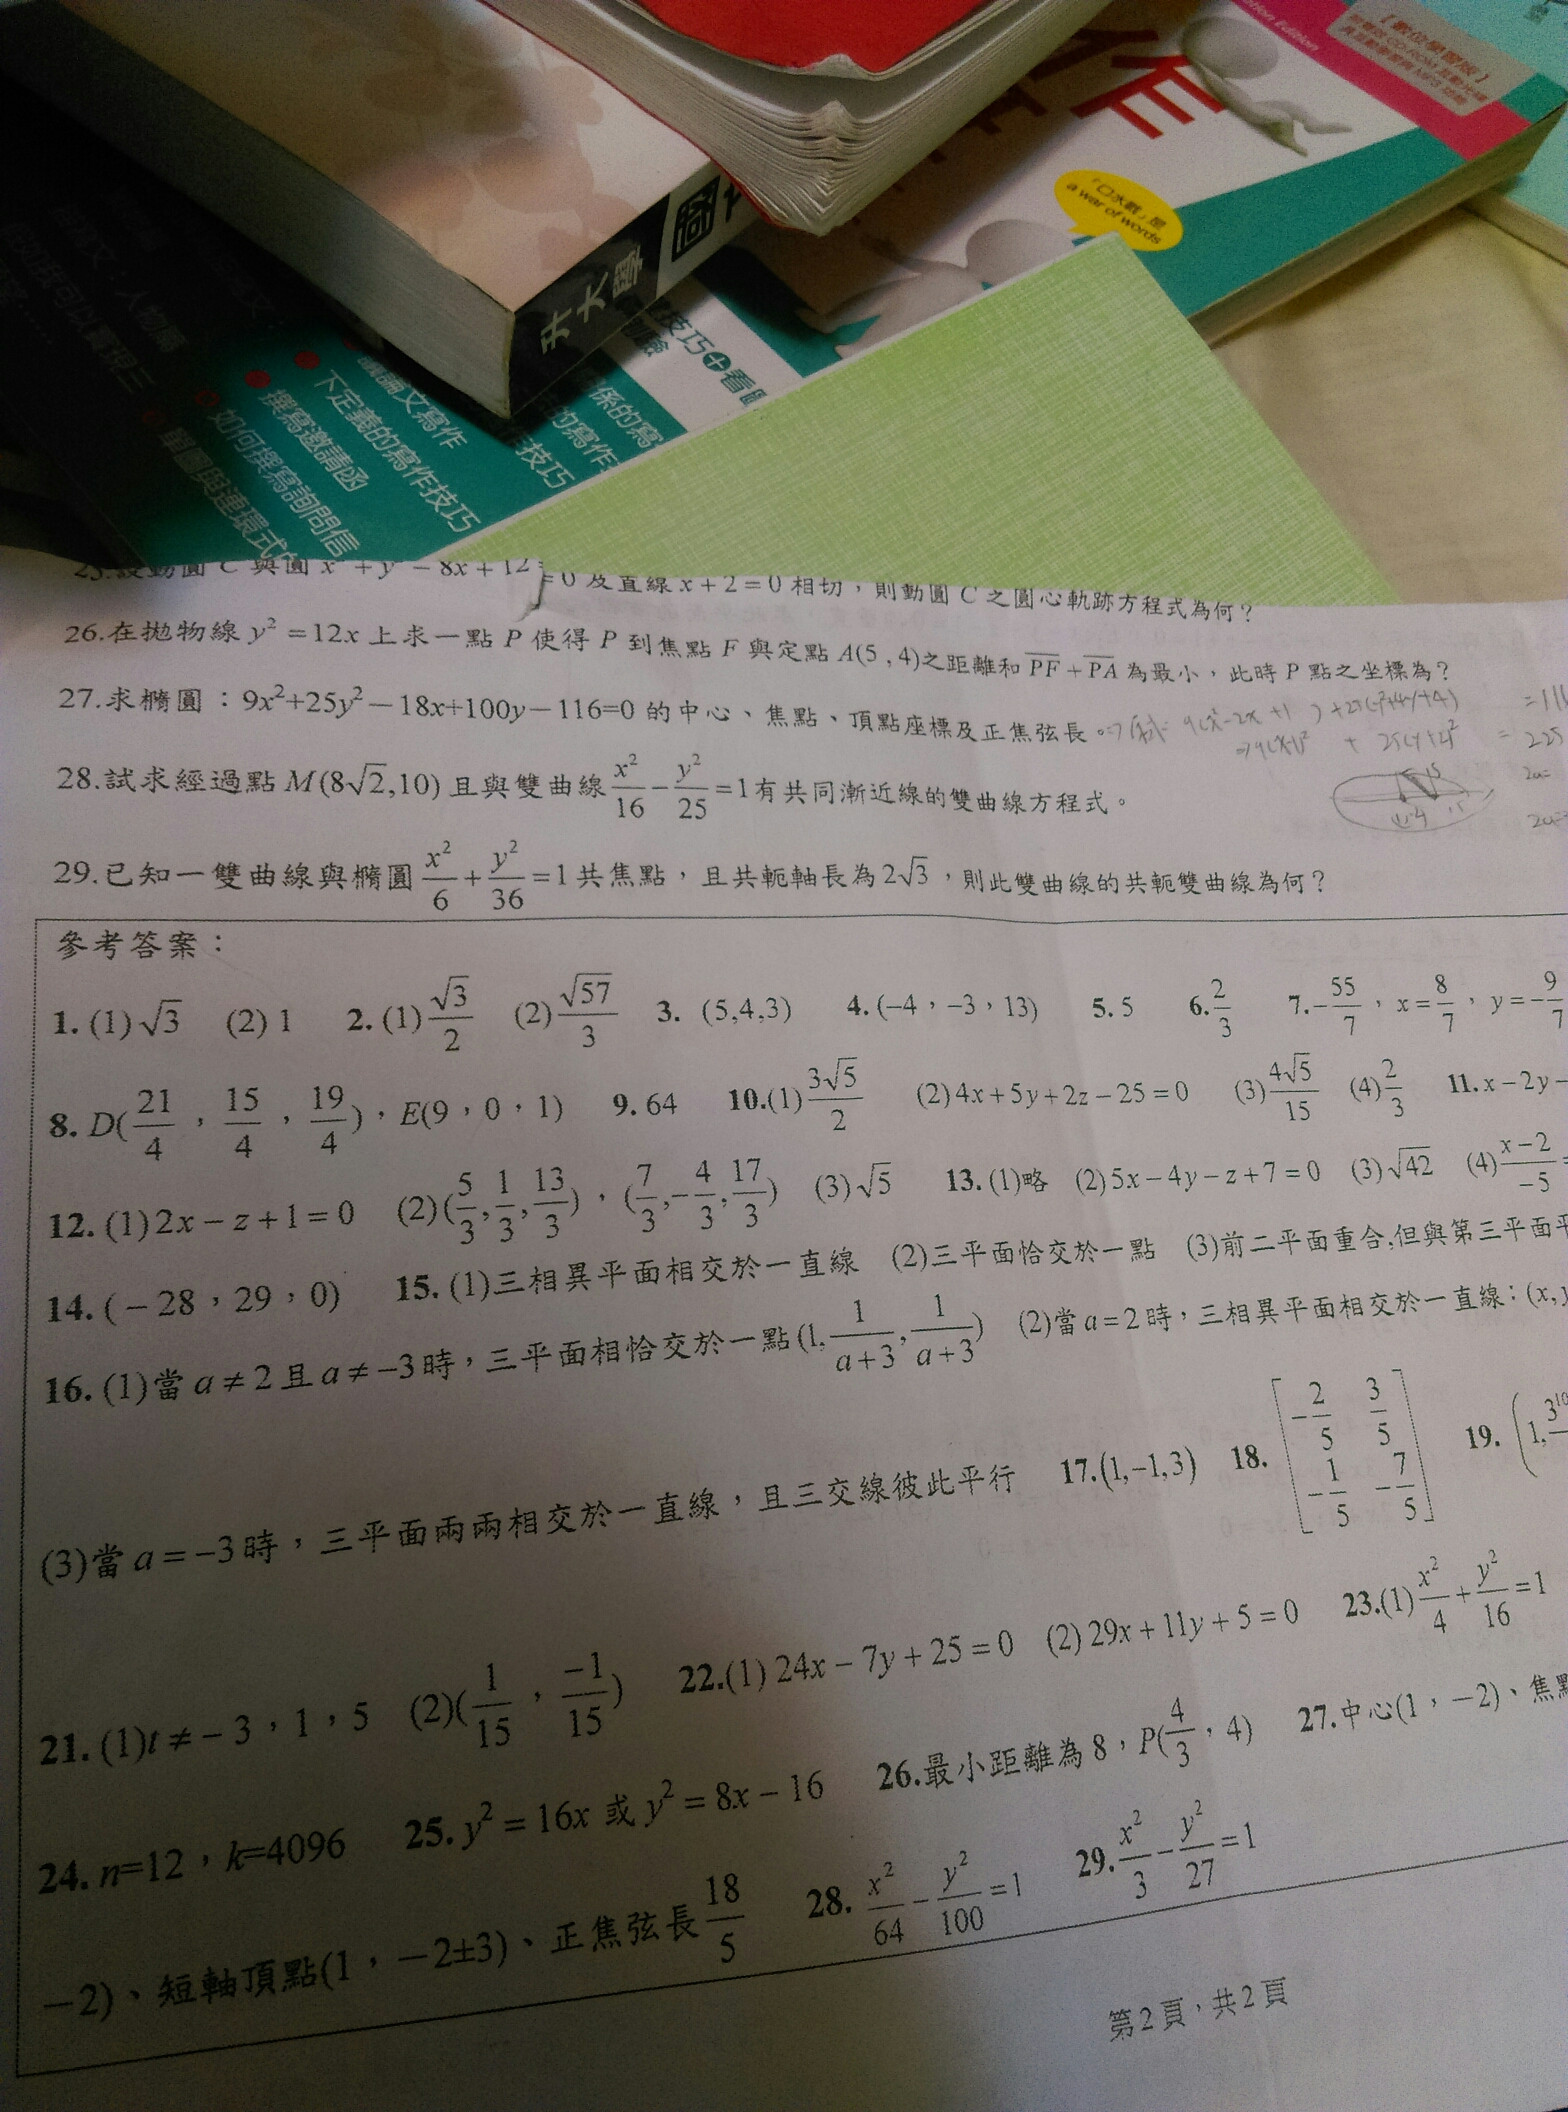 【數位學習版】
「口水戰」是
a war of words
升大學
下定義的寫作技巧
撰寫邀請函
如何撰寫詢問信
25.設動圓 C 與圓 x² + y² − 8x + 12 = 0 及直線 x + 2 = 0 相切，則動圓 C 之圓心軌跡方程式為何？
26.在拋物線 y² = 12x 上求一點 P 使得 P 到焦點 F 與定點 A(5 , 4)之距離和 PF + PA 為最小，此時 P 點之坐標為？
27.求橢圓：9x²+25y²−18x+100y−116=0 的中心、焦點、頂點座標及正焦弦長。
28.試求經過點 M(8√2,10) 且與雙曲線 x²/16 − y²/25 = 1 有共同漸近線的雙曲線方程式。
29.已知一雙曲線與橢圓 x²/6 + y²/36 = 1 共焦點，且共軛軸長為 2√3，則此雙曲線的共軛雙曲線為何？
參考答案：
1. (1) √3 (2) 1 2. (1) √3/2 (2) √57/3 3. (5,4,3) 4. (−4，−3，13) 5. 5 6. 2/3 7. −55/7，x = 8/7，y = −9/7
8. D(21/4，15/4，19/4)，E(9，0，1) 9. 64 10.(1) 3√5/2 (2) 4x + 5y + 2z − 25 = 0 (3) 4√5/15 (4) 2/3 11. x − 2y −
12. (1) 2x − z + 1 = 0 (2) (5/3, 1/3, 13/3)，(7/3, −4/3, 17/3) (3) √5 13. (1)略 (2) 5x − 4y − z + 7 = 0 (3) √42 (4) x−2/−5 =
14. (−28，29，0) 15. (1)三相異平面相交於一直線 (2)三平面恰交於一點 (3)前二平面重合,但與第三平面平
16. (1)當 a ≠ 2 且 a ≠ −3 時，三平面相恰交於一點 (1, 1/a+3, 1/a+3) (2)當 a = 2 時，三相異平面相交於一直線：(x, y
(3)當 a = −3 時，三平面兩兩相交於一直線，且三交線彼此平行 17.(1,−1,3) 18. [−2/5 3/5 −1/5 −7/5] 19. (1,
21. (1) t ≠ −3，1，5 (2)(1/15，−1/15) 22.(1) 24x − 7y + 25 = 0 (2) 29x + 11y + 5 = 0 23.(1) x²/4 + y²/16 = 1
24. n=12，k=4096 25. y² = 16x 或 y² = 8x − 16 26.最小距離為 8，P(4/3，4) 27.中心(1，−2)、焦點
−2)、短軸頂點(1，−2±3)、正焦弦長 18/5 28. x²/64 − y²/100 = 1 29. x²/3 − y²/27 = 1
第 2 頁，共 2 頁